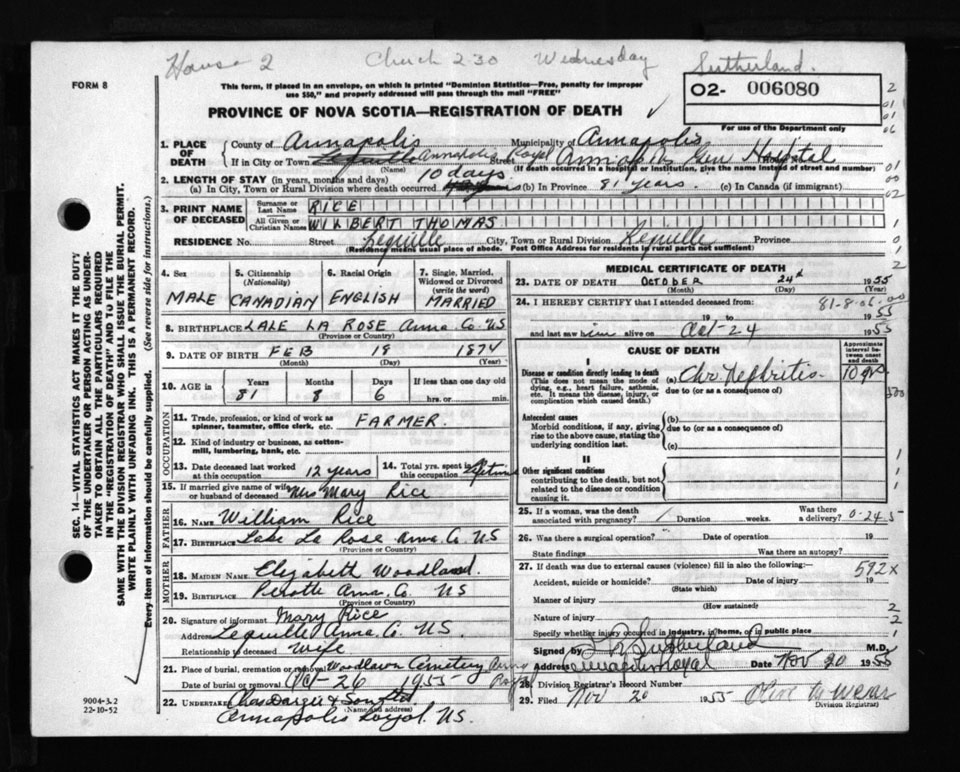 House 2 Church 2-30 Wednesday Sutherland.
FORM 8
This form, if placed in an envelope, on which is printed "Dominion Statistics—Free, penalty for improper
use $50," and properly addressed will pass through the mail "FREE"
PROVINCE OF NOVA SCOTIA—REGISTRATION OF DEATH
O2- 006080
For use of the Department only
2
01
01
06
SEC. 14—VITAL STATISTICS ACT MAKES IT THE DUTY
OF THE UNDERTAKER OR PERSON ACTING AS UNDER-
TAKER TO OBTAIN ALL THE PARTICULARS REQUIRED
IN THE "REGISTRATION OF DEATH" AND TO FILE THE
SAME WITH THE DIVISION REGISTRAR WHO SHALL ISSUE THE BURIAL PERMIT.
WRITE PLAINLY WITH UNFADING INK. THIS IS A PERMANENT RECORD.
Every item of information should be carefully supplied. (See reverse side for instructions.)
1. PLACE OF DEATH County of Annapolis Municipality of Annapolis
If in City or Town Lequille Annapolis Royal Street Annapolis Gen Hospital
(Name) (If death occurred in a hospital or institution, give the name instead of street and number)
2. LENGTH OF STAY (in years, months and days) 10 days
(a) In City, Town or Rural Division where death occurred (b) In Province 81 years. (c) In Canada (if immigrant)
01
00
02
3. PRINT NAME OF DECEASED Surname or Last Name RICE
All Given or Christian Names WILBERT THOMAS
RESIDENCE No. Street Lequille City, Town or Rural Division Lequille Province
(Residence means usual place of abode. Post Office Address for residents in rural parts not sufficient)
1
0
1
2
4. Sex MALE
5. Citizenship (Nationality) CANADIAN
6. Racial Origin ENGLISH
7. Single, Married, Widowed or Divorced (write the word) MARRIED
8. BIRTHPLACE LAKE LA ROSE Anna. Co. NS
(Province or Country)
9. DATE OF BIRTH FEB 18 1874
(Month) (Day) (Year)
10. AGE in Years Months Days If less than one day old
81 8 6 hrs. or min.
OCCUPATION
11. Trade, profession, or kind of work as spinner, teamster, office clerk, etc. FARMER.
12. Kind of industry or business, as cotton-mill, lumbering, bank, etc.
13. Date deceased last worked at this occupation 12 years
14. Total yrs. spent in this occupation Lifetime
15. If married give name of wife or husband of deceased Mrs Mary Rice
FATHER
16. NAME William Rice
17. BIRTHPLACE Lake La Rose Anna. Co. NS
(Province or Country)
MOTHER
18. MAIDEN NAME Elizabeth Woodland.
19. BIRTHPLACE Perotte Anna. Co. NS
(Province or Country)
20. Signature of informant Mary Rice
Address Lequille Anna. Co. NS.
Relationship to deceased Wife
21. Place of burial, cremation or removal Woodlawn Cemetery Anna Royal
Date of burial or removal Oct-26 1955
22. UNDERTAKER Chas Dargie & Son Ltd.
(Name and address)
Annapolis Royal. NS.
9004-3.2
22-10-52
MEDICAL CERTIFICATE OF DEATH
23. DATE OF DEATH OCTOBER 24th 1955
(Month) (Day) (Year)
24. I HEREBY CERTIFY that I attended deceased from 81-8-06-00
19 to 1955
and last saw him alive on Oct-24 1955
CAUSE OF DEATH
Approximate interval between onset and death
I
Disease or condition directly leading to death (a) Chr Nephritis 10 yrs
(This does not mean the mode of dying, e.g., heart failure, asthenia, etc. It means the disease, injury, or complication which caused death.)
due to (or as a consequence of)
Antecedent causes (b)
Morbid conditions, if any, giving rise to the above cause, stating the underlying condition last.
due to (or as a consequence of)
(c)
II
Other significant conditions contributing to the death, but not related to the disease or condition causing it.
1
1
25. If a woman, was the death associated with pregnancy? Duration weeks. Was there a delivery? 0-24 5
26. Was there a surgical operation? Date of operation 19
State findings Was there an autopsy?
27. If death was due to external causes (violence) fill in also the following: 592X
Accident, suicide or homicide? Date of injury 19
(State which)
Manner of injury
(How sustained)
Nature of injury
Specify whether injury occurred in industry, in home, or in public place
2
1
1
Signed by Sutherland M.D.
Address Annapolis Royal Date Nov 20 1955
28. Division Registrar's Record Number
29. Filed Nov 20 1955
(Division Registrar)